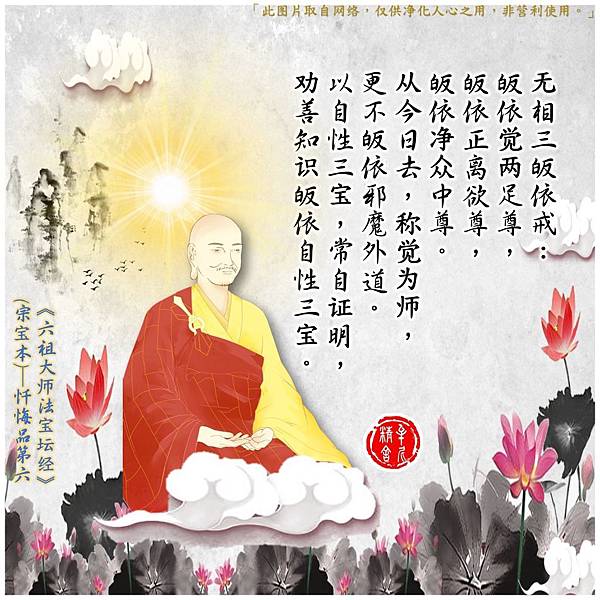 「此图片取自网络，仅供净化人心之用，非营利使用。」
无相三皈依戒：
皈依觉两足尊，
皈依正离欲尊，
皈依净众中尊。
从今日去，称觉为师，
更不皈依邪魔外道。
以自性三宝，常自证明，
劝善知识皈依自性三宝。
精舍
《六祖大师法宝坛经》
(宗宝本)—忏悔品第六